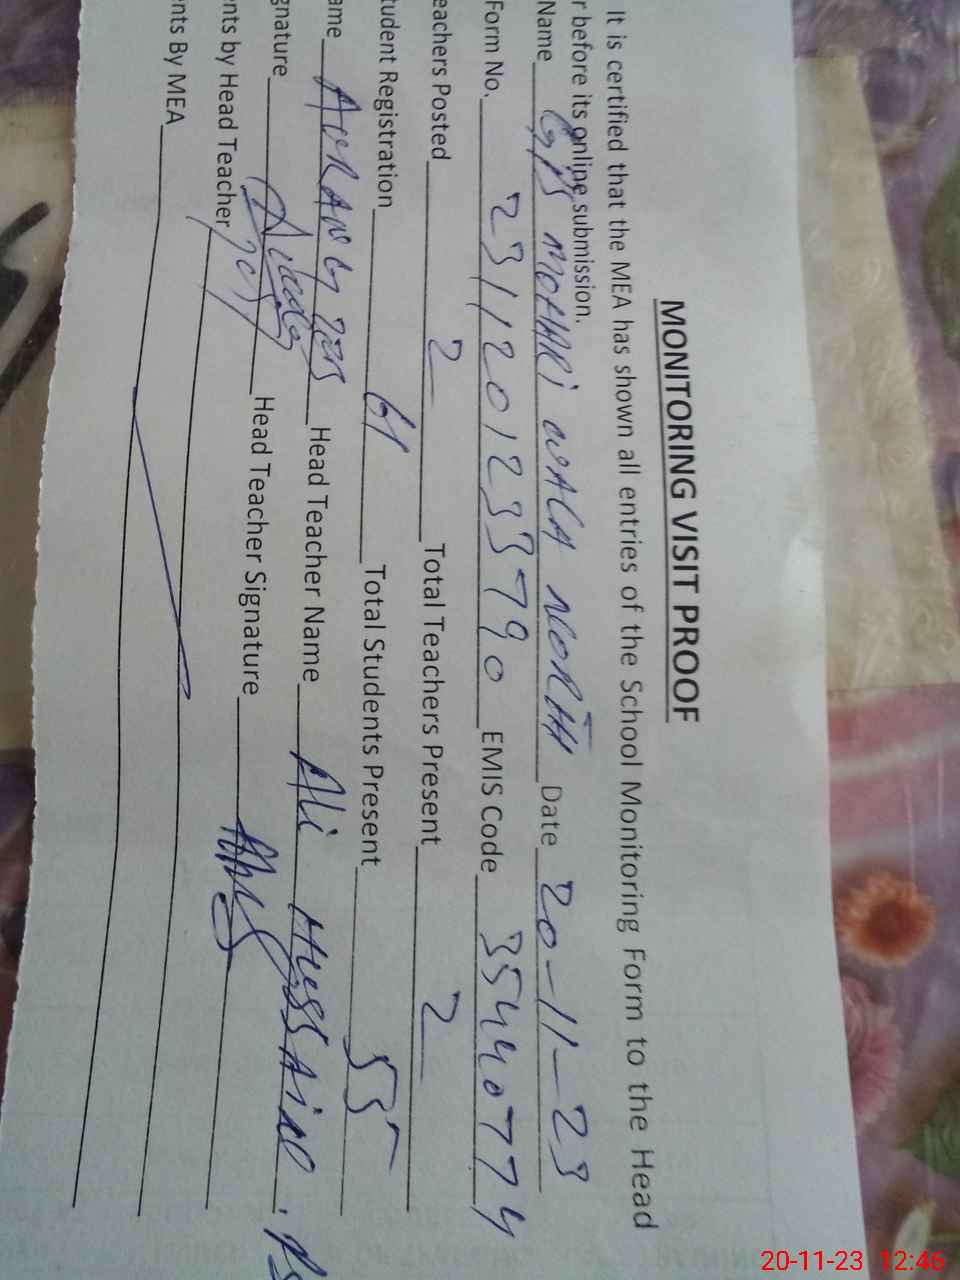 MONITORING VISIT PROOF
It is certified that the MEA has shown all entries of the School Monitoring Form to the Head
r before its online submission.
Name GPS MOHARi WALA NORTH Date 20-11-23
Form No. 2311201233790 EMIS Code 35440774
eachers Posted 2 Total Teachers Present 2
tudent Registration 61 Total Students Present 55
ame Head Teacher Name Ali Hussain
gnature Head Teacher Signature
nts by Head Teacher
nts By MEA
20-11-23 12:46